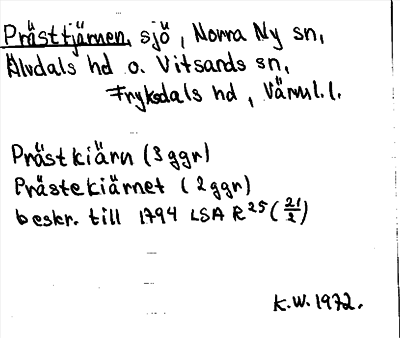 Prästtjärnen, sjö, Norra Ny sn,
Älvdals hd o. Vitsands sn,
Fryksdals hd, Värml. l.
Prästkiärn (3 ggr)
Prästekiärnet (2 ggr)
beskr. till 1794 LSA R 25 (21/2)
K.W. 1972.